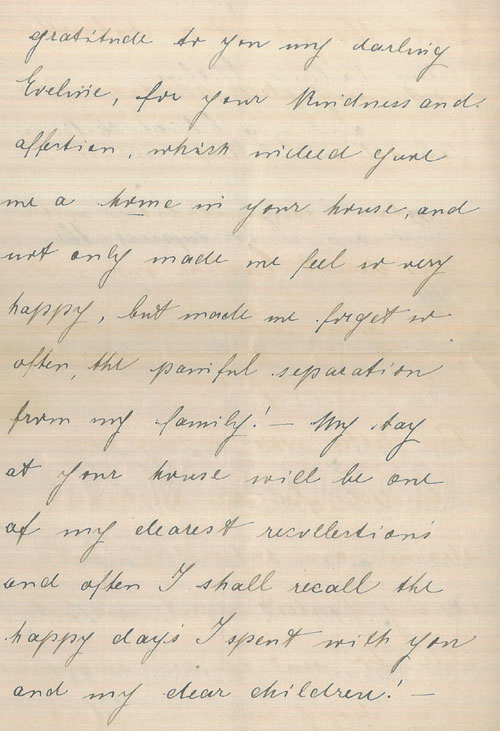 gratitude to you my darling
Eveline, for your kindness and
affection, which indeed gave
me a home in your house, and
not only made me feel so very
happy, but made me forget so
often, the painful separation
from my family! — My stay
at your house will be one
of my dearest recollections
and often I shall recall the
happy days I spent with you
and my dear children! —